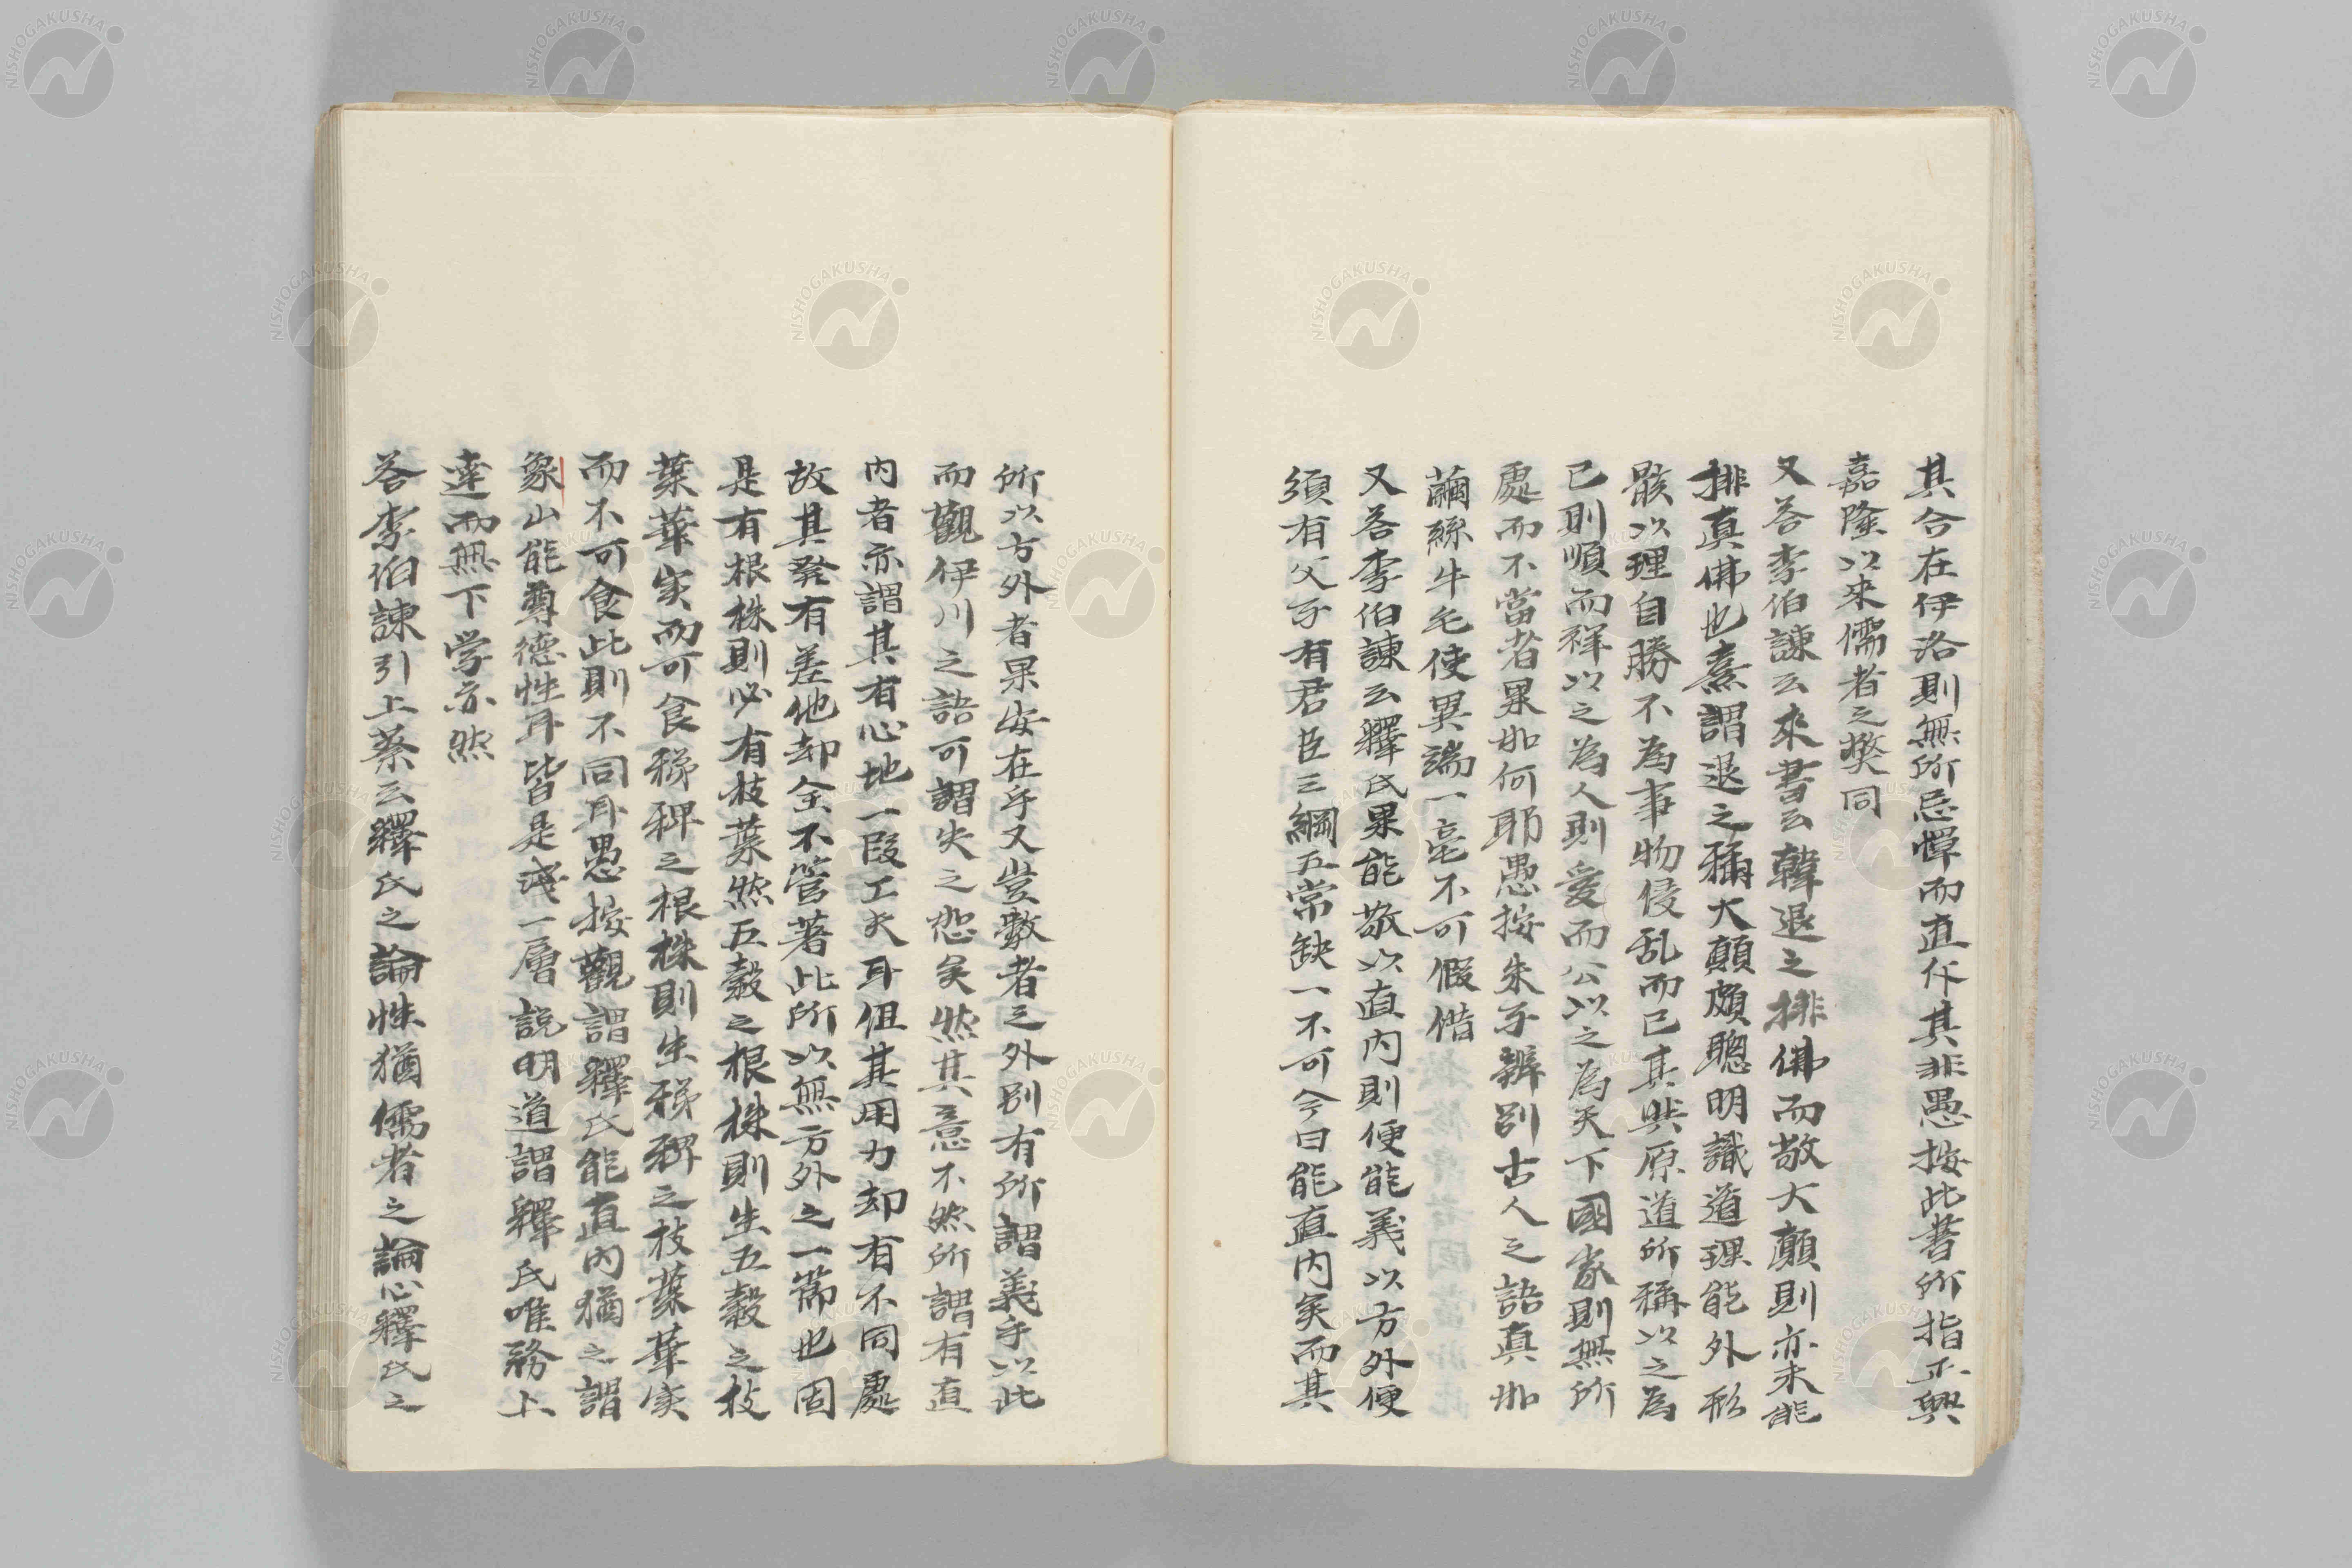 其合在伊洛則無所忌憚而直斥其非愚按此書所指正與
嘉隆以来儒者之弊同
又答李伯諫云來書云韓退之排佛而敬大顛則亦未能
排真佛也熹謂退之稱大顛頗聰明識道理能外形
骸以理自勝不為事物侵乱而已其與原道所稱以之為
己則順而祥以之為人則愛而公以之為天下國家則無所
處而不當者果如何耶愚按朱子辨別古人之語真如
繭絲牛毛使異端一毫不可假借
又答李伯諫云釋氏果能敬以直内則便能義以方外便
須有父子有君臣三綱五常缺一不可今曰能直内矣而其
所以方外者果安在乎又豈數者之外別有所謂義乎以此
而觀伊川之語可謂失之恕矣然其意不然所謂有直
内者亦謂其有心地一段工夫耳但其用力却有不同處
故其発有差他却全不管著此所以無方外之一節也固
是有根株則必有枝葉然五穀之根株則生五穀之枝
葉華実而可食稊稗之根株則生稊稗之枝葉華実
而不可食此則不同耳愚按觀謂釋氏能直内猶之謂
象山能尊德性耳皆是淺一層説明道謂釋氏唯務上
達而無下学亦然
答李伯諫引上蔡云釋氏之論性猶儒者之論心釋氏之
NISHOGAKUSHA